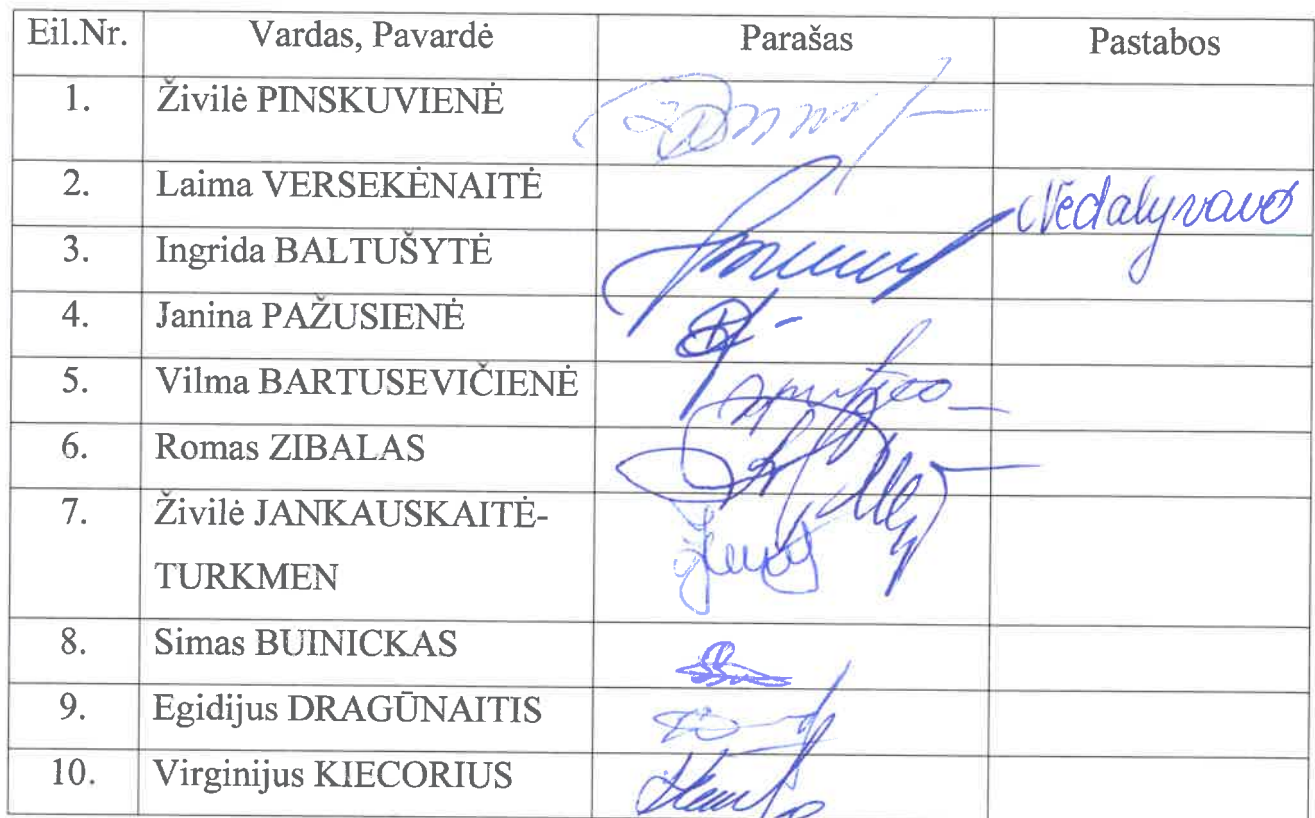 Eil.Nr. Vardas, Pavardė Parašas Pastabos
1. Živilė PINSKUVIENĖ
2. Laima VERSEKĖNAITĖ Nedalyvavo
3. Ingrida BALTUŠYTĖ
4. Janina PAŽUSIENĖ
5. Vilma BARTUSEVIČIENĖ
6. Romas ZIBALAS
7. Živilė JANKAUSKAITĖ-
TURKMEN
8. Simas BUINICKAS
9. Egidijus DRAGŪNAITIS
10. Virginijus KIECORIUS